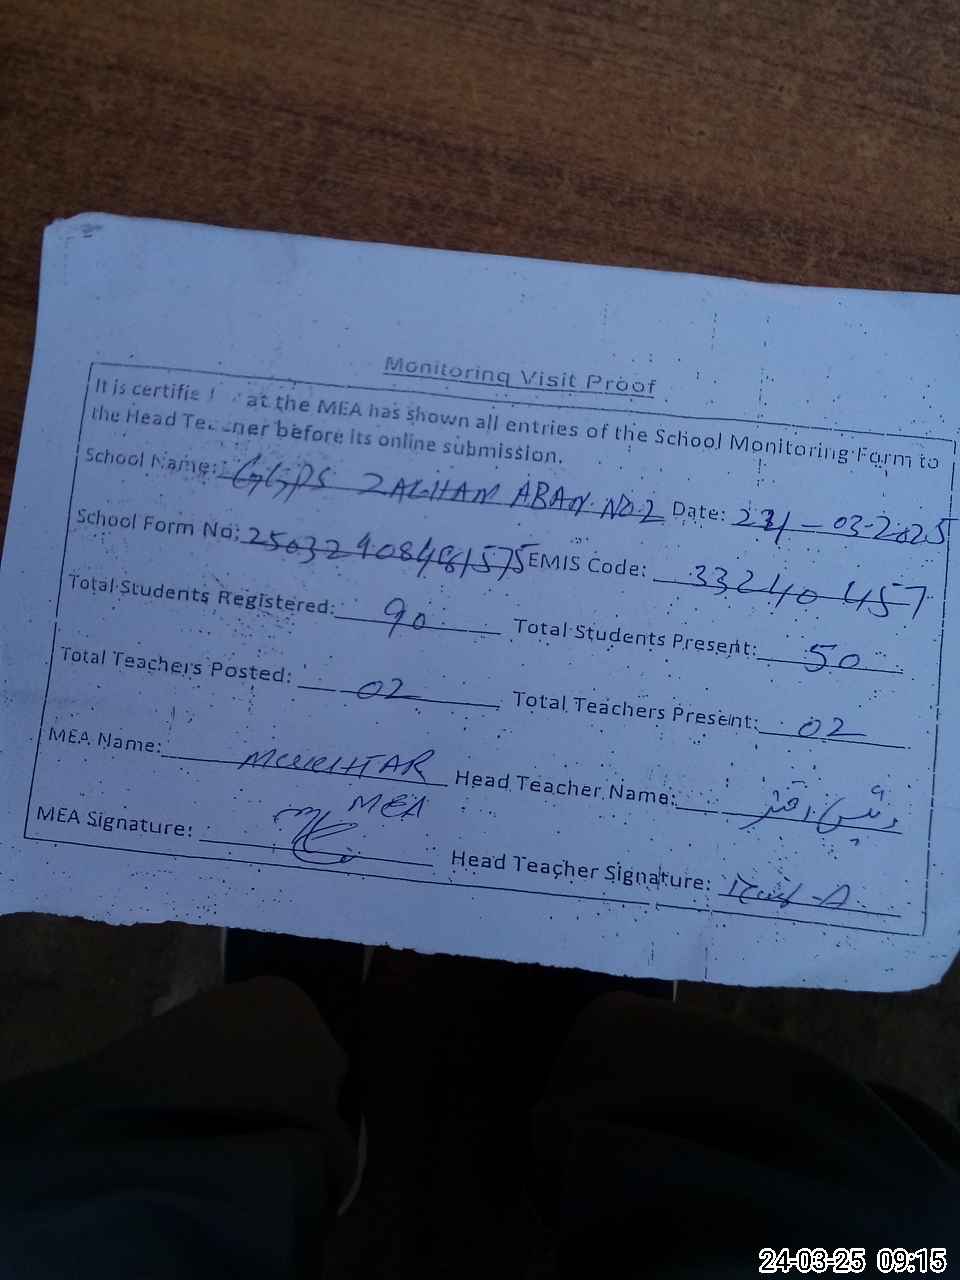 Monitoring Visit Proof
It is certifie at the MEA has shown all entries of the School Monitoring Form to
the Head Teacher before its online submission.
School Name: GGPS ZAGHAM ABAN NO.2 Date: 24-03-2025
School Form No: EMIS Code: 33240457
Total Students Registered: 90 Total Students Present: 50
Total Teachers Posted: 02 Total Teachers Present: 02
MEA Name: MUKHTAR Head Teacher Name:
MEA
MEA Signature: Head Teacher Signature:
24-03-25 09:15